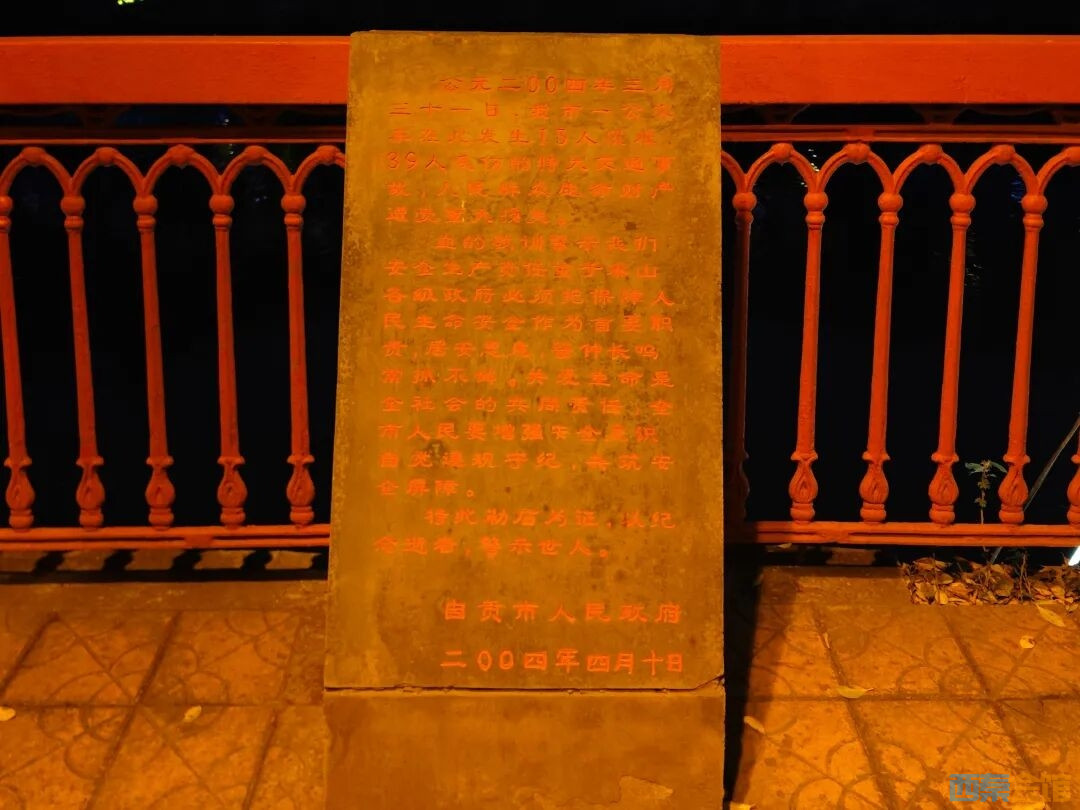 公元二00四年三月
三十一日,我市一公交
车在此发生13人
39人受伤的特大交通事
故,人民群众生命财产
遭受重大损失。
血的教训警示我们
安全生产责任重于泰山
各级政府必须把保障人
民生命安全作为首要职
责,居安思危,警钟长鸣
常抓不懈。关爱生命是
全社会的共同责任,全
市人民要增强安全意识
自觉遵规守纪,共筑安
全屏障。
特此勒石为证,以纪
念逝者,警示世人。
自贡市人民政府
二00四年四月十日